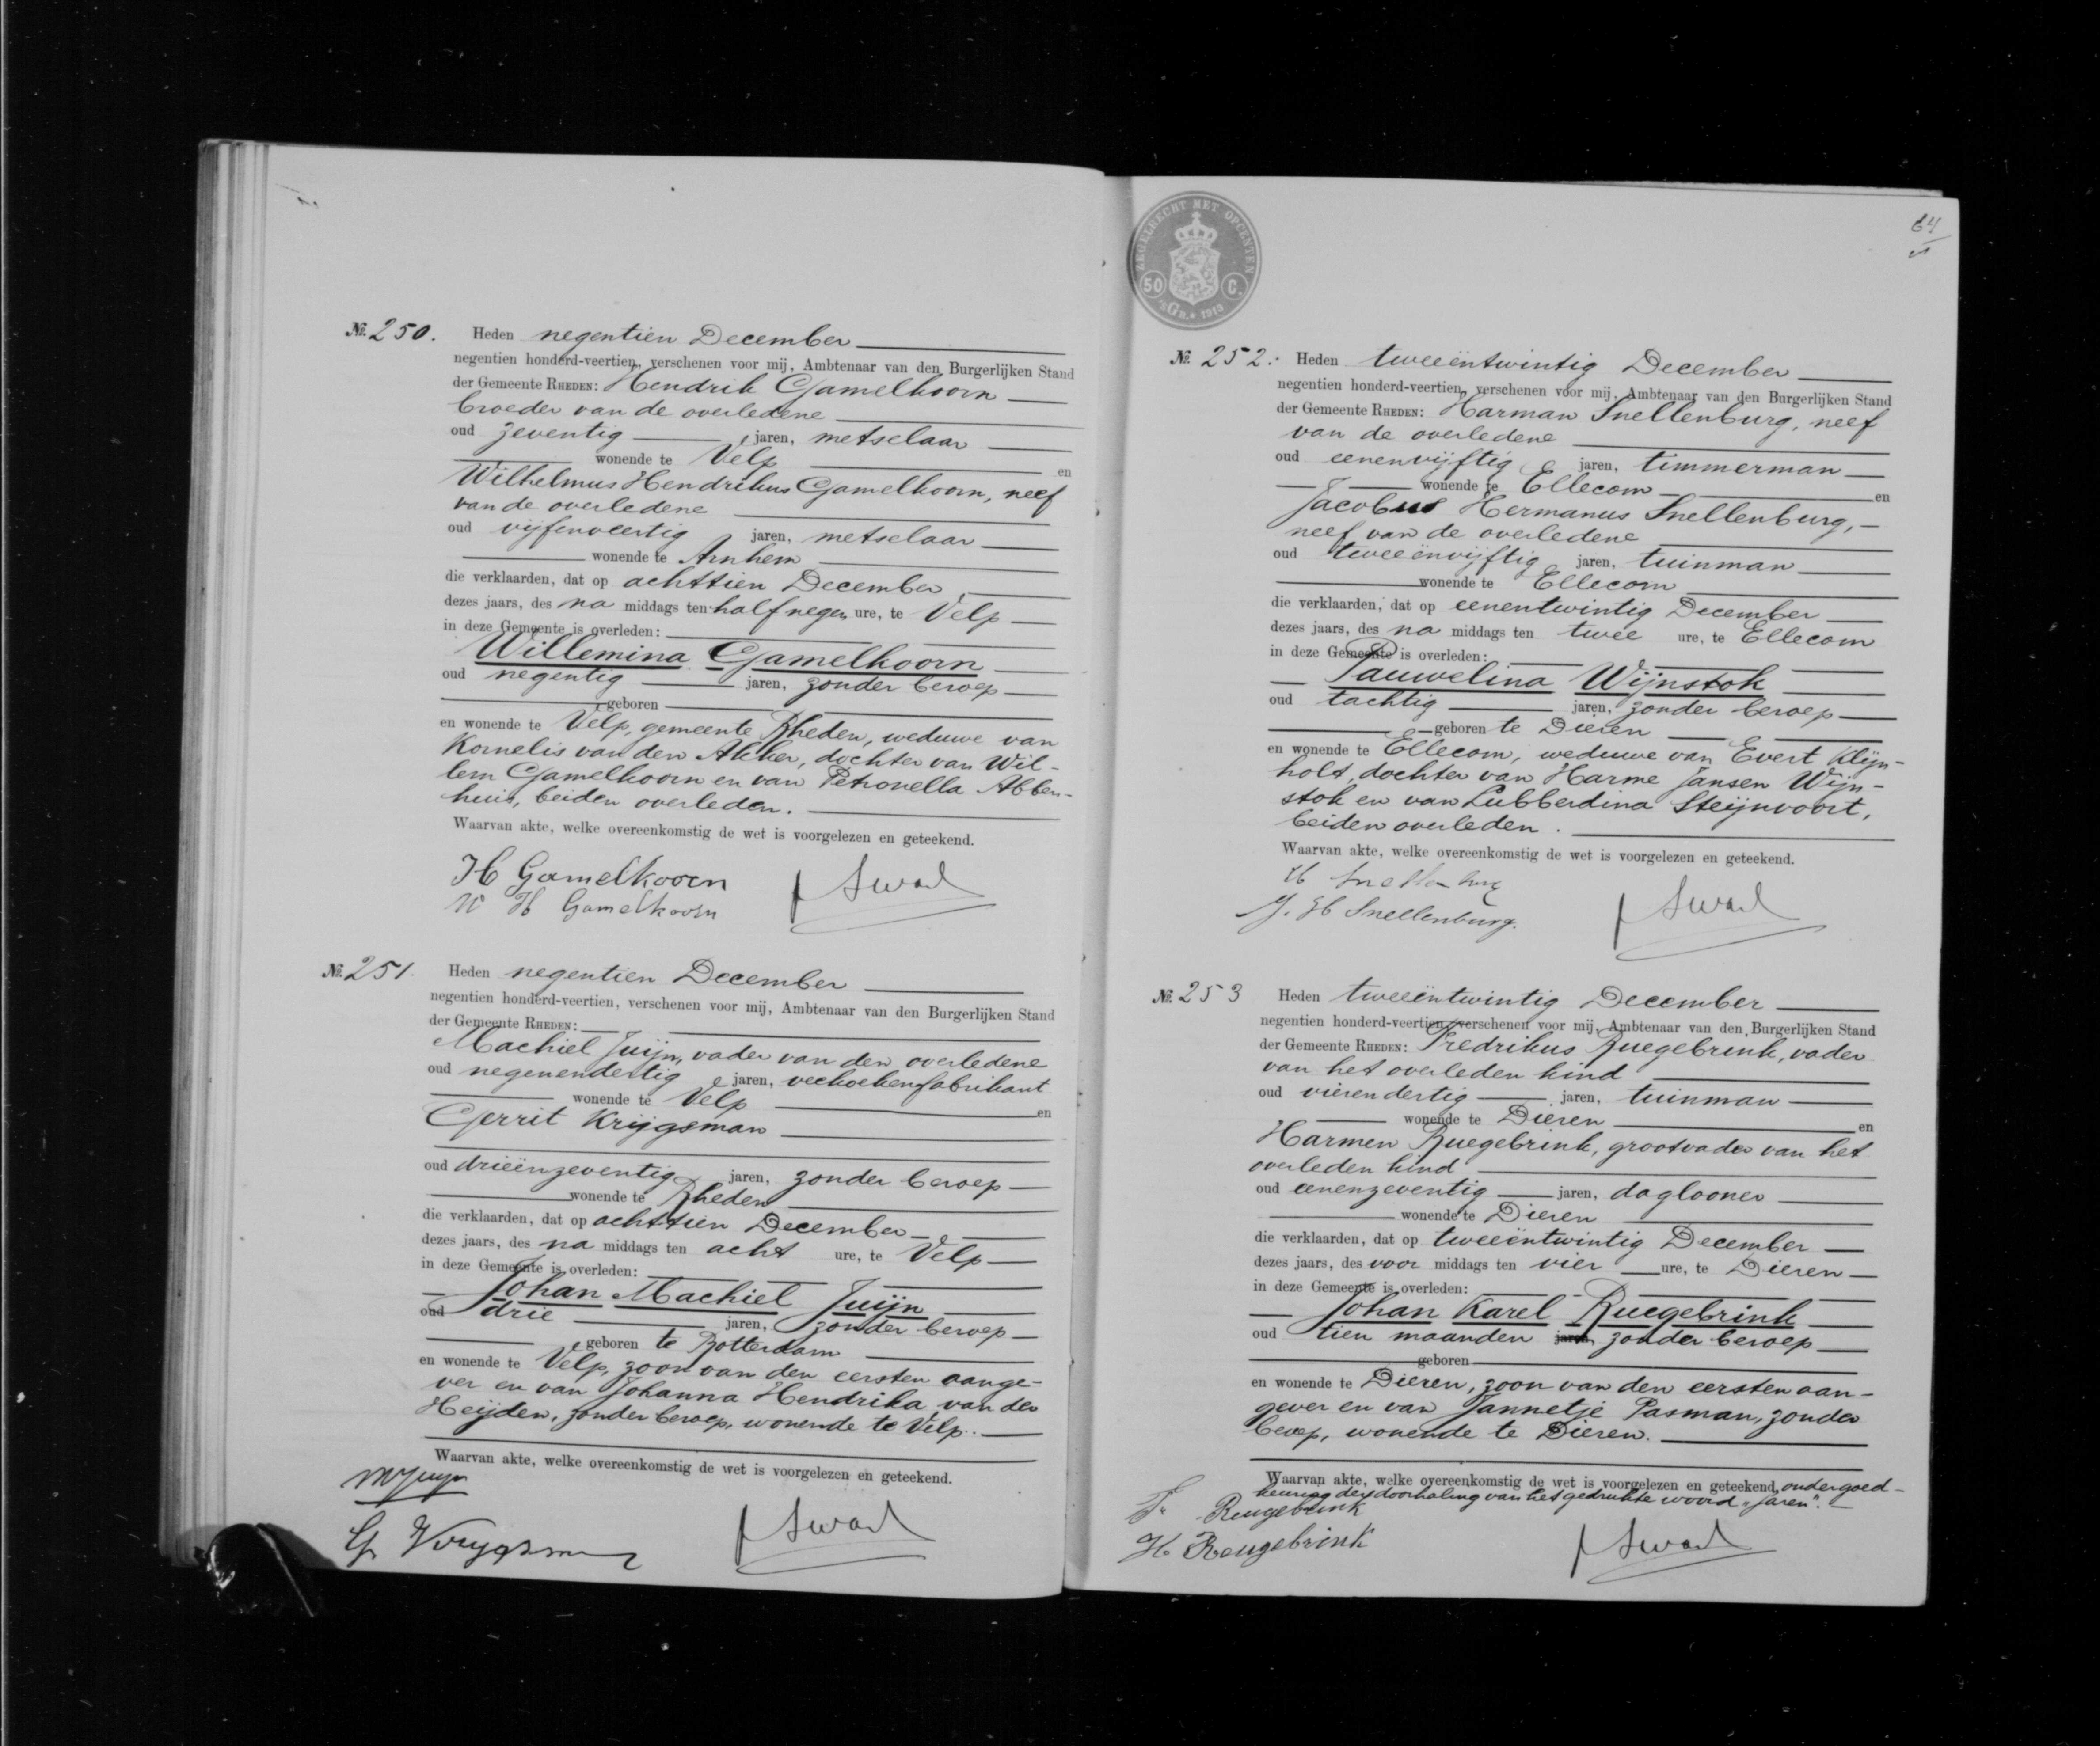 №. 250. Heden negentien December
negentien honderd-veertien, verschenen voor mij, Ambtenaar van den Burgerlijken Stand
der Gemeente RHEDEN: Hendrik Gamelkoorn
broeder van de overledene
oud zeventig jaren, metselaar
wonende te Velp en
Wilhelmus Hendrikus Gamelkoorn, neef
van de overledene
oud vijfenveertig jaren, metselaar
wonende te Arnhem
die verklaarden, dat op achttien December
dezes jaars, des na middags ten half negen ure, te Velp
in deze Gemeente is overleden:
Willemina Gamelkoorn
oud negentig jaren, zonder beroep
geboren
en wonende te Velp, gemeente Rheden, weduwe van
Kornelis van den Akker, dochter van Wil-
lem Gamelkoorn en van Petronella Abben-
huis, beiden overleden.
Waarvan akte, welke overeenkomstig de wet is voorgelezen en geteekend.
H Gamelkoorn
W H Gamelkoorn
№. 251. Heden negentien December
negentien honderd-veertien, verschenen voor mij, Ambtenaar van den Burgerlijken Stand
der Gemeente RHEDEN:
Machiel Juijn, vader van den overledene
oud negenendertig jaren, veekoekenfabrikant
wonende te Velp en
Gerrit Krijgsman
oud drieënzeventig jaren, zonder beroep
wonende te Rheden
die verklaarden, dat op achttien December
dezes jaars, des na middags ten acht ure, te Velp
in deze Gemeente is overleden:
Johan Machiel Juijn
oud drie jaren, zonder beroep
geboren te Rotterdam
en wonende te Velp, zoon van den eersten aange-
ver en van Johanna Hendrika van der
Heijden, zonder beroep, wonende te Velp.
Waarvan akte, welke overeenkomstig de wet is voorgelezen en geteekend.
M Juijn
G Krijgsman
ZEGELRECHT MET OPCENTEN
50 C.
'sGR. 1913
64
№. 252. Heden tweeëntwintig December
negentien honderd-veertien, verschenen voor mij, Ambtenaar van den Burgerlijken Stand
der Gemeente RHEDEN: Harman Snellenburg, neef
van de overledene
oud eenenvijftig jaren, timmerman
wonende te Ellecom en
Jacobus Hermanus Snellenburg,
neef van de overledene
oud tweeënvijftig jaren, tuinman
wonende te Ellecom
die verklaarden, dat op eenentwintig December
dezes jaars, des na middags ten twee ure, te Ellecom
in deze Gemeente is overleden:
Pauwelina Wijnstok
oud tachtig jaren, zonder beroep
geboren te Dieren
en wonende te Ellecom, weduwe van Evert Klijn-
holt, dochter van Harme Jansen Wijn-
stok en van Lubberdina Steijnvoort,
beiden overleden.
Waarvan akte, welke overeenkomstig de wet is voorgelezen en geteekend.
H Snellenburg
J. H Snellenburg.
№. 253 Heden tweeëntwintig December
negentien honderd-veertien, verschenen voor mij, Ambtenaar van den Burgerlijken Stand
der Gemeente RHEDEN: Fredrikus Ruegebrink, vader
van het overleden kind
oud vierendertig jaren, tuinman
wonende te Dieren en
Harmen Ruegebrink, grootvader van het
overleden kind
oud eenenzeventig jaren, daglooner
wonende te Dieren
die verklaarden, dat op tweeëntwintig December
dezes jaars, des voor middags ten vier ure, te Dieren
in deze Gemeente is overleden:
Johan Karel Ruegebrink
oud tien maanden jaren zonder beroep
geboren
en wonende te Dieren, zoon van den eersten aan-
gever en van Jannetje Pasman, zonder
beroep, wonende te Dieren.
Waarvan akte, welke overeenkomstig de wet is voorgelezen en geteekend, onder goed-
keuring der doorhaling van het gedrukte woord "jaren".
F. Reugebrink
H Reugebrink